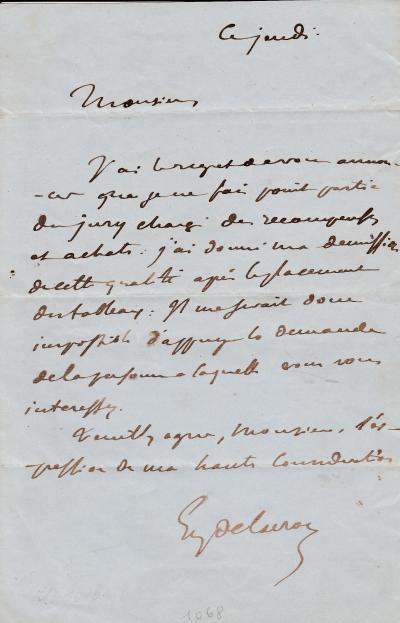 Ce jeudi.
Monsieur
J'ai le regret de vous annon-
-cer que je ne fais point partie
du jury chargé des recompenses
et achats : j'ai donné ma demission
de cette qualité après le placement
des tableaux : Il me serait donc
impossible d'appuyer la demande
de la personne a laquelle vous vous
interessez.
Veuillez agréer, Monsieur, l'ex-
pression de ma haute consideration
Eug Delacroix
1068